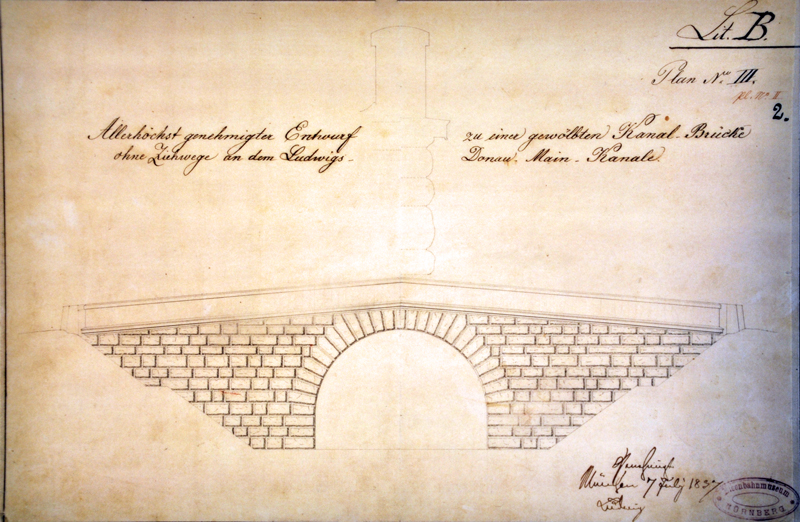 Lit. B.
Plan No. III.
pl. No. II
2.
Allerhöchst genehmigter Entwurf zu einer gewölbten Kanal-Brücke
ohne Ziehwege an dem Ludwigs- Donau-Main-Kanale.
Genehmigt
München 7 July 183
Ludwig
Eisenbahnmuseum
NÜRNBERG